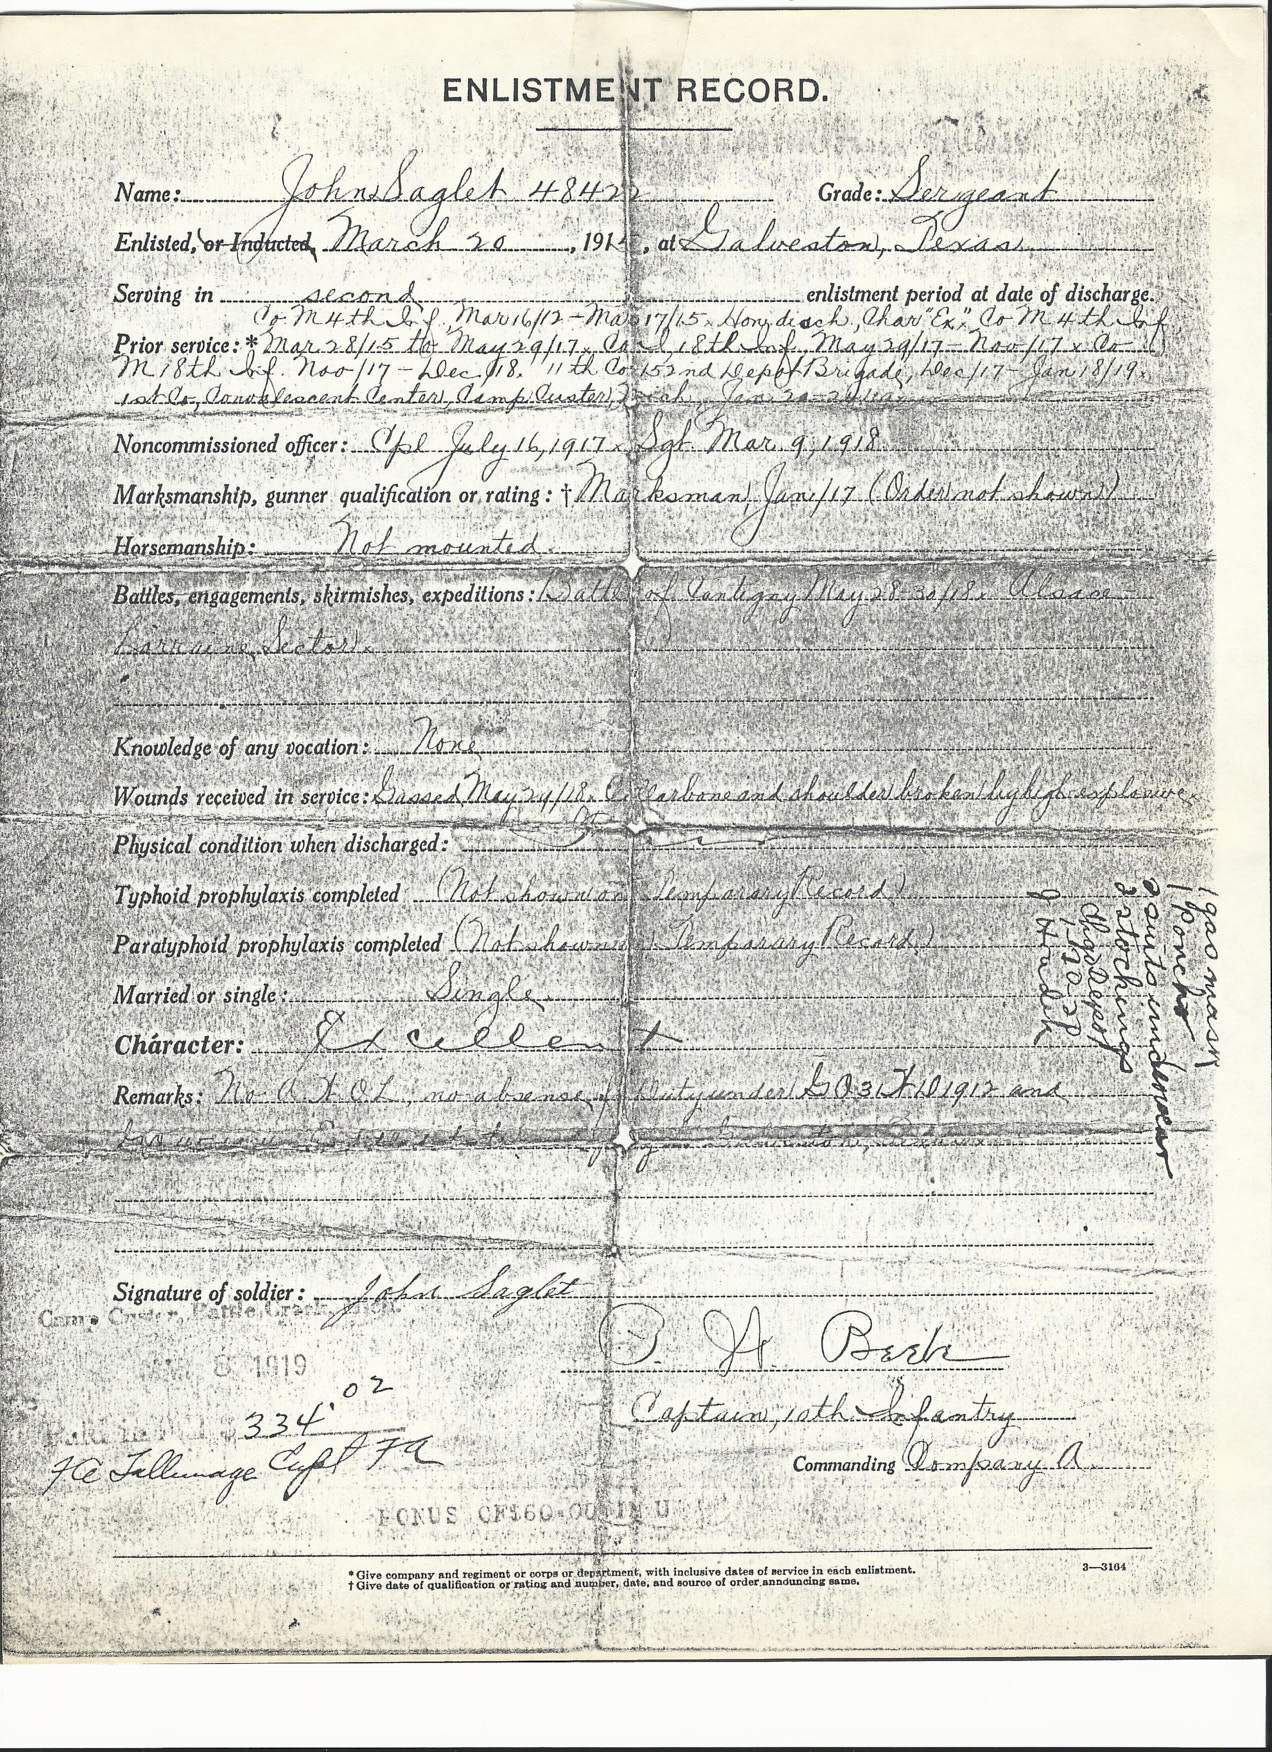 ENLISTMENT RECORD.
Name: John Saglet 48422 Grade: Sergeant
Enlisted, or Inducted, March 20, 1915, at Galveston, Texas
Serving in second enlistment period at date of discharge.
Co M 4th Inf, Mar 16/12 - Mar 17/15 x Hon disch, Char "Ex." Co M 4th Inf
Prior service: * Mar 28/15 to May 29/17 x Co 18th Inf May 29/17 - Nov/17 x Co
M 18th Inf. Nov/17 - Dec /18. 11th Co 152nd Depot Brigade, Dec/17 - Jan 18/19.
1st Co, Convalescent Center, Camp Custer, Mich, Jan. 20
Noncommissioned officer: Cpl July 16, 1917 x Sgt Mar. 9, 1918
Marksmanship, gunner qualification or rating: † Marksman, Jan/17 (Order not shown)
Horsemanship: Not mounted.
Battles, engagements, skirmishes, expeditions: Battle of Cantigny May 28-30/18. Alsace-
Lorraine Sector.
Knowledge of any vocation: None
Wounds received in service: Gassed May 24/18. Collarbone and shoulder broken by high explosive
Physical condition when discharged:
Typhoid prophylaxis completed (Not shown on Temporary Record)
Paratyphoid prophylaxis completed (Not shown on Temporary Record)
Married or single: Single
Character: Excellent
Remarks: No A W O L, no absence fr duty under G O 31 W D 1912 and
Signature of soldier: John Saglet
Camp Custer, Battle Creek, Mich.
8 1919
P. H.
334.02
Captain, 10th Infantry
Capt FA
Commanding Company A.
BONUS OF $60.00
* Give company and regiment or corps or department, with inclusive dates of service in each enlistment.
† Give date of qualification or rating and number, date, and source of order announcing same.
3—3164
1 gas mask
1 poncho
2 suits underwear
2 stockings